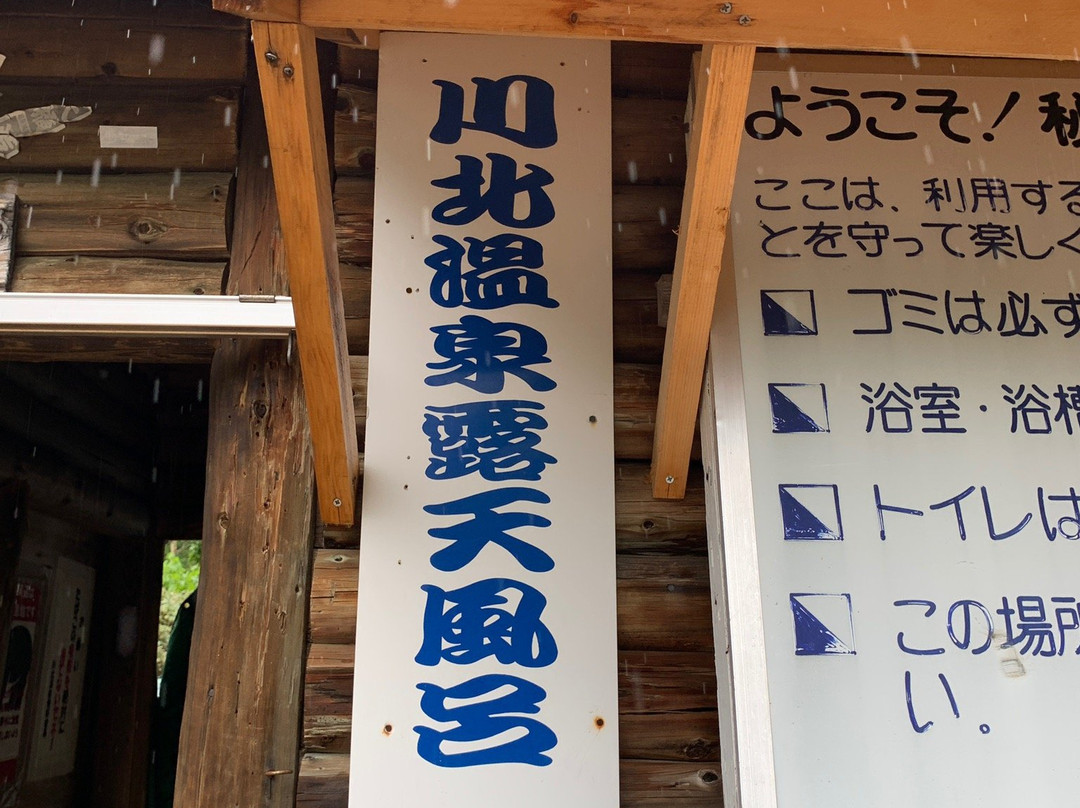 川北温泉露天風呂
ようこそ!秘
ここは、利用する
とを守って楽しく
ゴミは必ず
浴室・浴槽
トイレは
この場所
い。